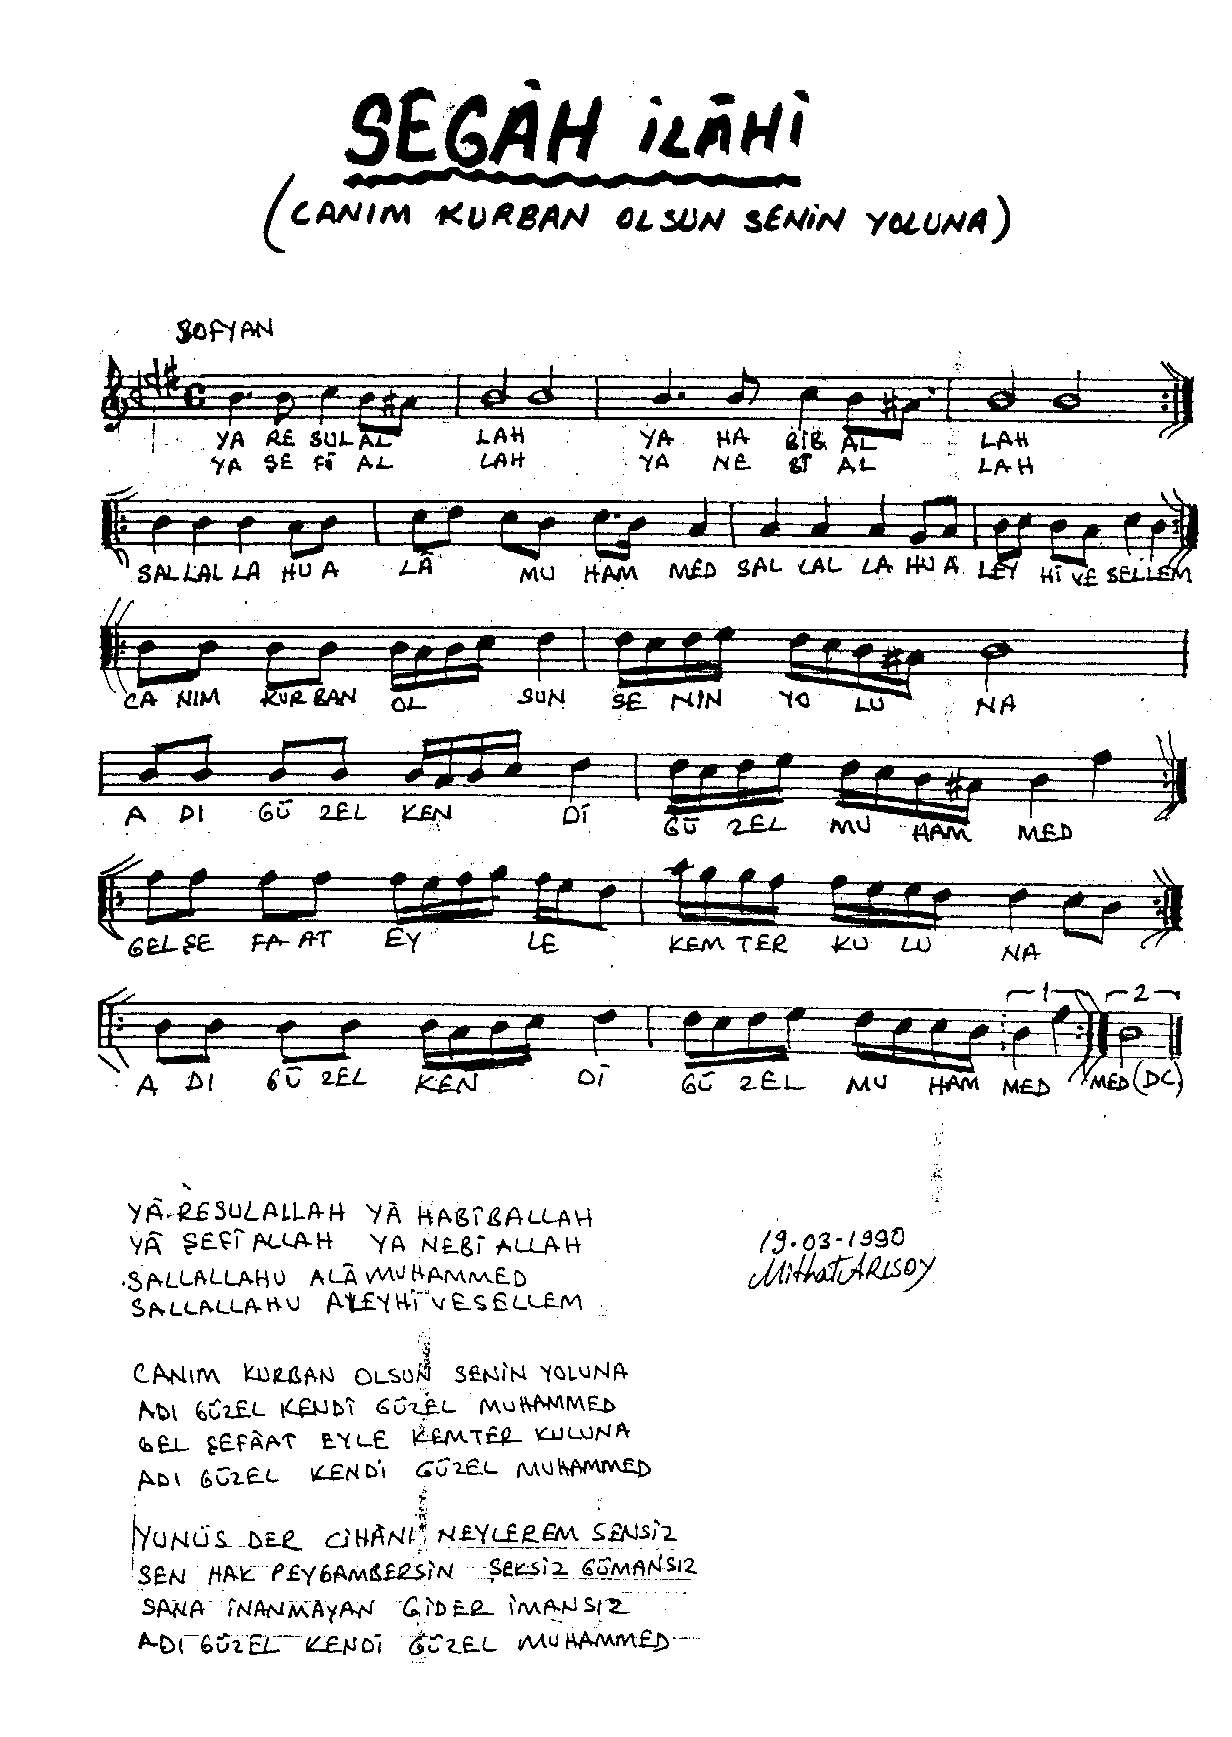 SEGÂH İLÂHİ
(CANIM KURBAN OLSUN SENİN YOLUNA)
SOFYAN
YA RE SUL AL LAH YA HA BİB AL LAH
YA ŞE FÎ AL LAH YA NE BÎ AL LAH
SAL LAL LA HU A LÂ MU HAM MED SAL LAL LA HU A LEY Hİ VE SELLEM
CA NIM KUR BAN OL SUN SE NİN YO LU NA
A DI GÜ ZEL KEN Dİ GÜ ZEL MU HAM MED
GEL ŞE FA AT EY LE KEM TER KU LU NA
1 2
A DI GÜ ZEL KEN Dİ GÜ ZEL MU HAM MED MED (DC)
YÂ RESULALLAH YÂ HABÎBALLAH
YÂ ŞEFÎ ALLAH YA NEBÎ ALLAH
SALLALLAHU ALÂ MUHAMMED
SALLALLAHU ALEYHİ VESELLEM
19.03-1990
Mithat ARISOY
CANIM KURBAN OLSUN SENİN YOLUNA
ADI GÜZEL KENDİ GÜZEL MUHAMMED
GEL ŞEFÂAT EYLE KEMTER KULUNA
ADI GÜZEL KENDİ GÜZEL MUHAMMED
YUNÜS DER CİHÂNI NEYLEREM SENSİZ
SEN HAK PEYGAMBERSİN ŞEKSİZ GÜMANSIZ
SANA İNANMAYAN GİDER İMANSIZ
ADI GÜZEL KENDİ GÜZEL MUHAMMED